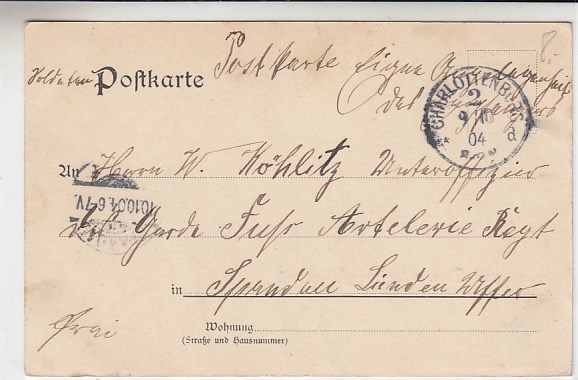 8.-
Postkarte Eigne Angelegenheit
Soldaten Postkarte
des Empfängers
CHARLOTTENBURG
2
9/10
04
d
An Herrn W. Köhlitz Unteroffizier
10.10.04. 6-7V.
Garde Fuss Artelerie Regt
in Spandau Linden Uffer
Frei
Wohnung
(Straße und Hausnummer)